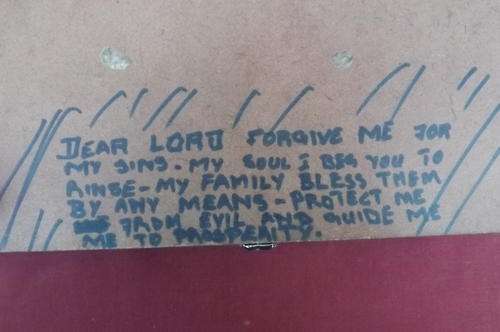 DEAR LORD FORGIVE ME FOR
MY SINS - MY SOUL I BEG YOU TO
RINSE - MY FAMILY BLESS THEM
BY ANY MEANS - PROTECT ME
FROM EVIL AND GUIDE ME
ME TO PROSPERITY.